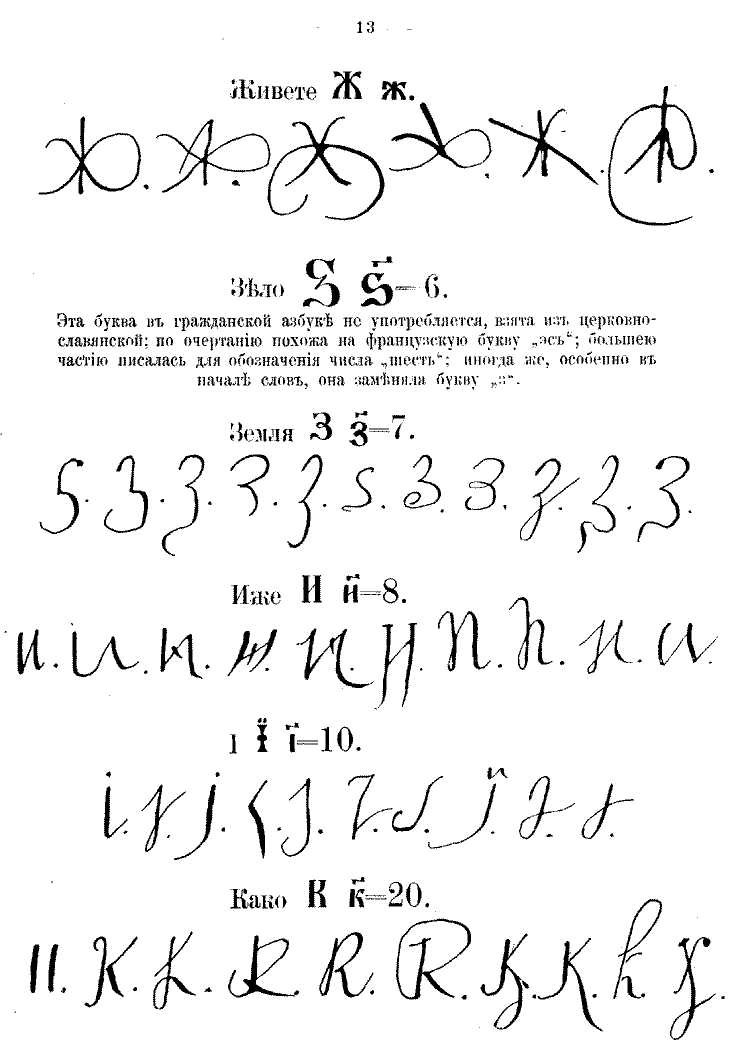 13
Живете Ж ж.
Зѣло Ѕ ѕ҃=6.
Эта буква въ гражданской азбукѣ не употребляется, взята изъ церковно-
славянской; по очертанію похожа на французскую букву „эсъ“; большею
частію писалась для обозначенія числа „шесть“; иногда же, особенно въ
началѣ словъ, она замѣняла букву „з“.
Земля З з҃=7.
Иже И и҃=8.
І Ї і҃=10.
Како К к҃=20.